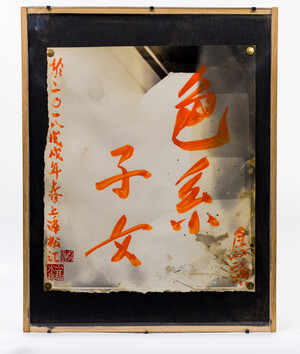 色系
子女
於二〇一八戊戌年春上海松江